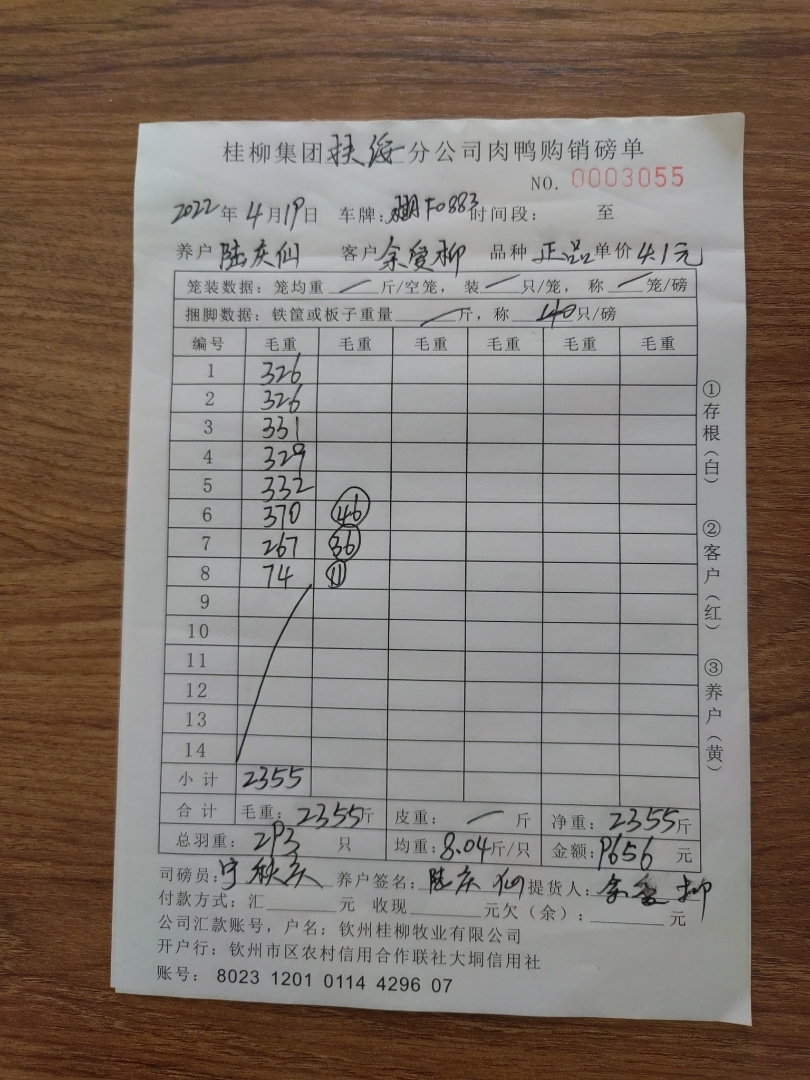 桂柳集团扶绥分公司肉鸭购销磅单
NO. 0003055
2022年4月19日 车牌: F0883 时间段: 至
养户 陆庆仙 客户 余爱柳 品种 正品 单价 4.1元
笼装数据: 笼均重 — 斤/空笼, 装 — 只/笼, 称 — 笼/磅
捆脚数据: 铁筐或板子重量 — 斤, 称 40 只/磅
编号 毛重 毛重 毛重 毛重 毛重 毛重
1 326
2 326
3 331
4 329
5 332
6 370 46
7 267 36
8 74 11
9
10
11
12
13
14
小计 2355
合计 毛重: 2355斤 皮重: — 斤 净重: 2355斤
总羽重: 293 只 均重: 8.04斤/只 金额: 9656 元
司磅员: 宁秋庆 养户签名: 陆庆仙 提货人: 余爱柳
付款方式: 汇 元 收现 元欠(余): 元
公司汇款账号, 户名: 钦州桂柳牧业有限公司
开户行: 钦州市区农村信用合作联社大垌信用社
账号: 8023 1201 0114 4296 07
①存根(白)
②客户(红)
③养户(黄)